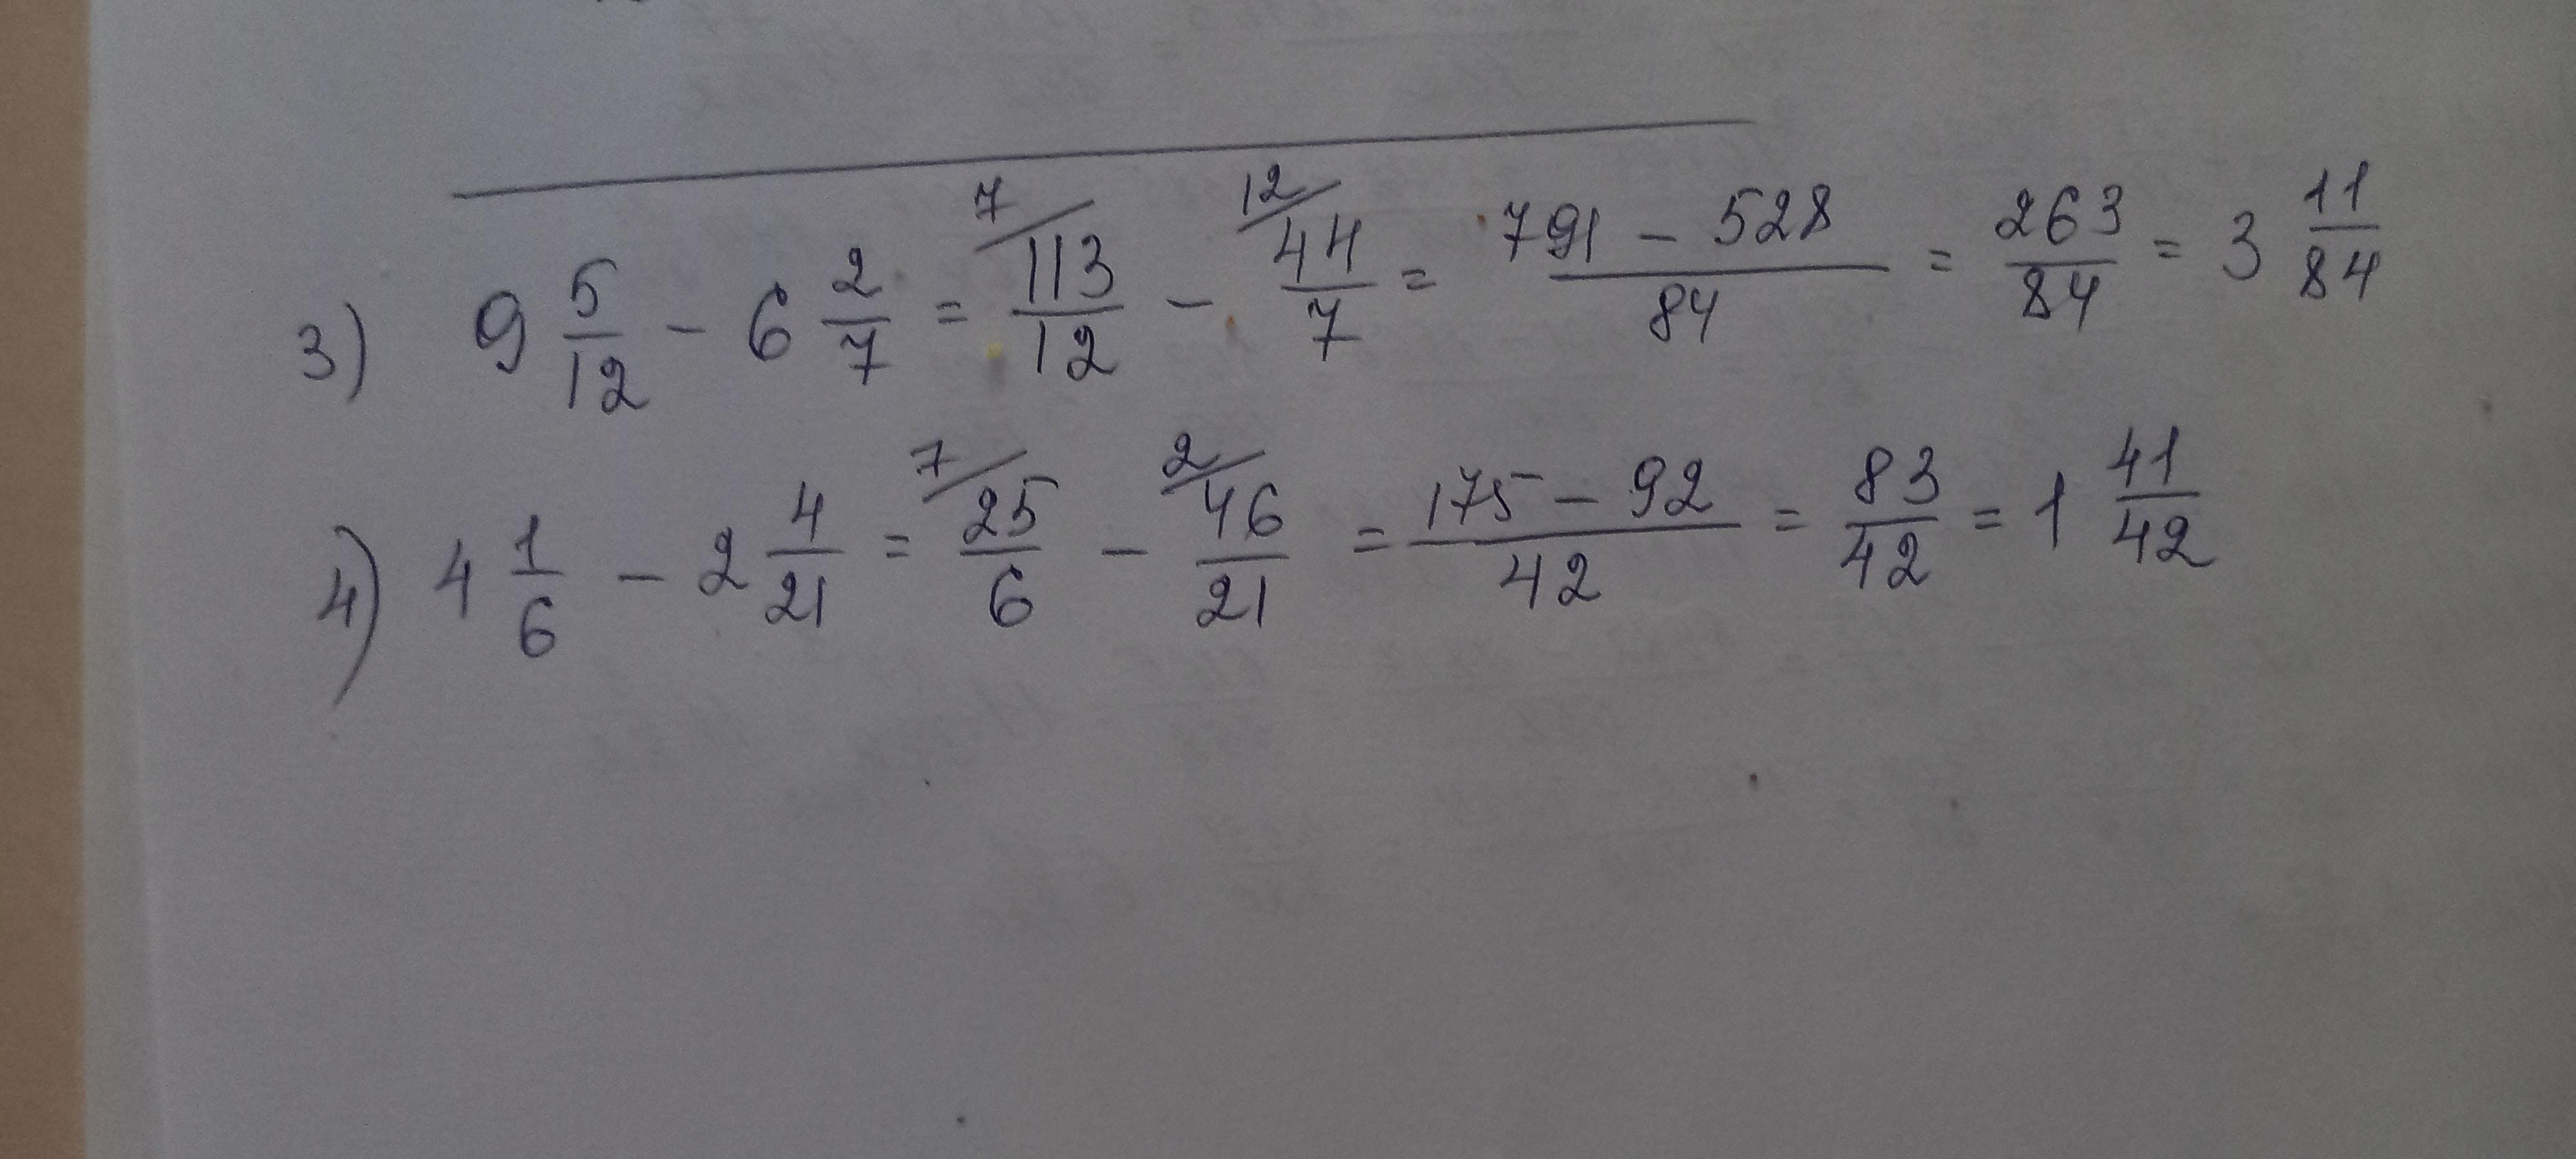 3) 9 5/12 - 6 2/7 = 7/ 113/12 - 12/ 44/7 = (791 - 528)/84 = 263/84 = 3 11/84
4) 4 1/6 - 2 4/21 = 7/ 25/6 - 2/ 46/21 = (175 - 92)/42 = 83/42 = 1 41/42